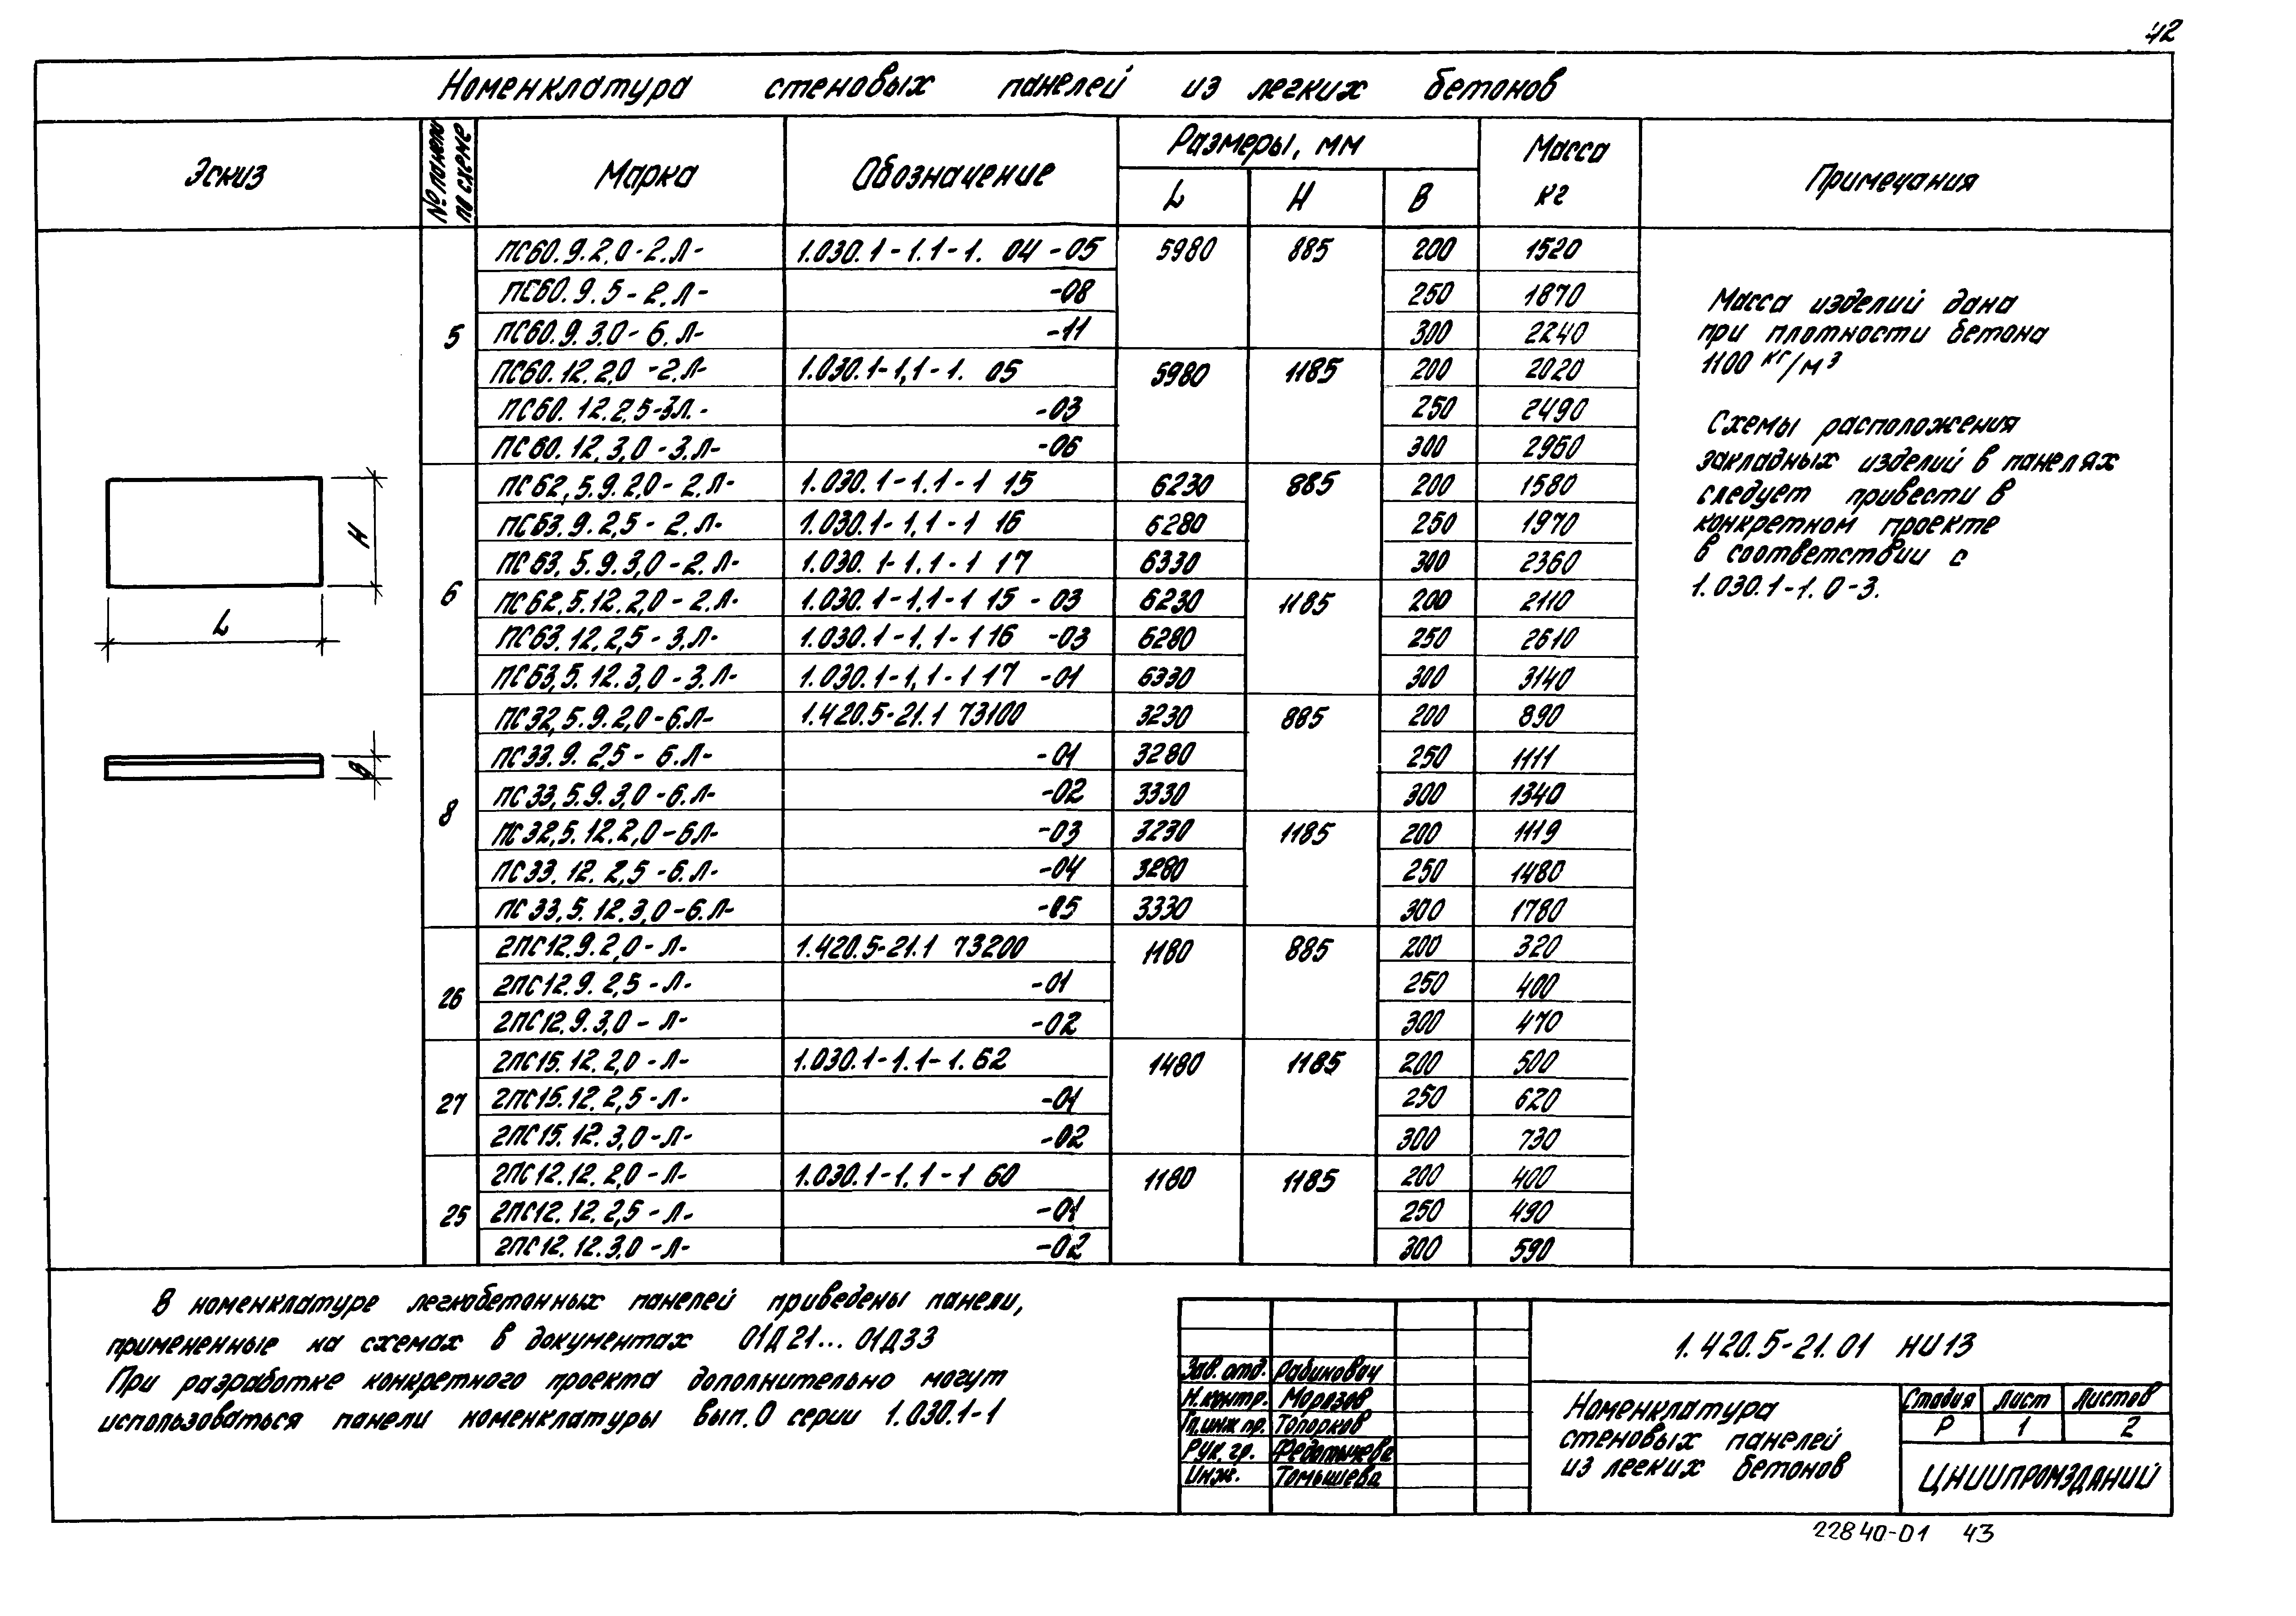 42
Номенклатура стеновых панелей из легких бетонов
Эскиз
№ панели по схеме
Марка
Обозначение
Размеры, мм
L H B
Масса кг
Примечания
5
ПС60.9.2,0-2.Л- 1.030.1-1.1-1. 04 -05 5980 885 200 1520
ПС60.9.5-2.Л- -08 250 1870
ПС60.9.3.0-6.Л- -11 300 2240
ПС60.12.2,0-2.Л- 1.030.1-1,1-1. 05 5980 1185 200 2020
ПС60.12.2,5-3Л.- -03 250 2490
ПС60.12.3,0-3.Л- -06 300 2960
6
ПС62,5.9.2,0-2.Л- 1.030.1-1.1-1 15 6230 885 200 1580
ПС63.9.2,5-2.Л- 1.030.1-1,1-1 16 6280 250 1970
ПС63,5.9.3,0-2.Л- 1.030.1-1.1-1 17 6330 300 2360
ПС62,5.12.2,0-2.Л- 1.030.1-1,1-1 15-03 6230 1185 200 2110
ПС63.12.2,5-3.Л- 1.030.1-1.1-1 16 -03 6280 250 2610
ПС63,5.12.3,0-3.Л- 1.030.1-1,1-1 17 -01 6330 300 3140
8
ПС32,5.9.2,0-6.Л- 1.420.5-21.1 73100 3230 885 200 890
ПС33.9.2,5-6.Л- -01 3280 250 1111
ПС33,5.9.3,0-6.Л- -02 3330 300 1340
ПС32,5.12.2,0-6Л- -03 3230 1185 200 1119
ПС33.12.2,5-6.Л- -04 3280 250 1480
ПС33,5.12.3,0-6.Л- -05 3330 300 1780
26
2ПС12.9.2,0-Л- 1.420.5-21.1 73200 1180 885 200 320
2ПС12.9.2,5-Л- -01 250 400
2ПС12.9.3,0-Л- -02 300 470
27
2ПС15.12.2,0-Л- 1.030.1-1.1-1.62 1480 1185 200 500
2ПС15.12.2,5-Л- -01 250 620
2ПС15.12.3,0-Л- -02 300 730
25
2ПС12.12.2,0-Л- 1.030.1-1.1-1 60 1180 1185 200 400
2ПС12.12.2,5-Л- -01 250 490
2ПС12.12.3,0-Л- -02 300 590
Масса изделий дана
при плотности бетона
1100 кг/м³
Схемы расположения
закладных изделий в панелях
следует привести в
конкретном проекте
в соответствии с
1.030.1-1.0-3.
H
L
B
В номенклатуре легкобетонных панелей приведены панели,
примененные на схемах в документах 01Д21... 01Д33
При разработке конкретного проекта дополнительно могут
использоваться панели номенклатуры вып.0 серии 1.030.1-1
Зав. отд. Рабинович
Н.контр. Морозов
Гл.инж пр. Топорков
Рук. гр.
Инж. Томышева
1.420.5-21.01 НИ13
Номенклатура
стеновых панелей
из легких бетонов
Стадия Лист Листов
Р 1 2
ЦНИИПРОМЗДАНИЙ
22840-01 43